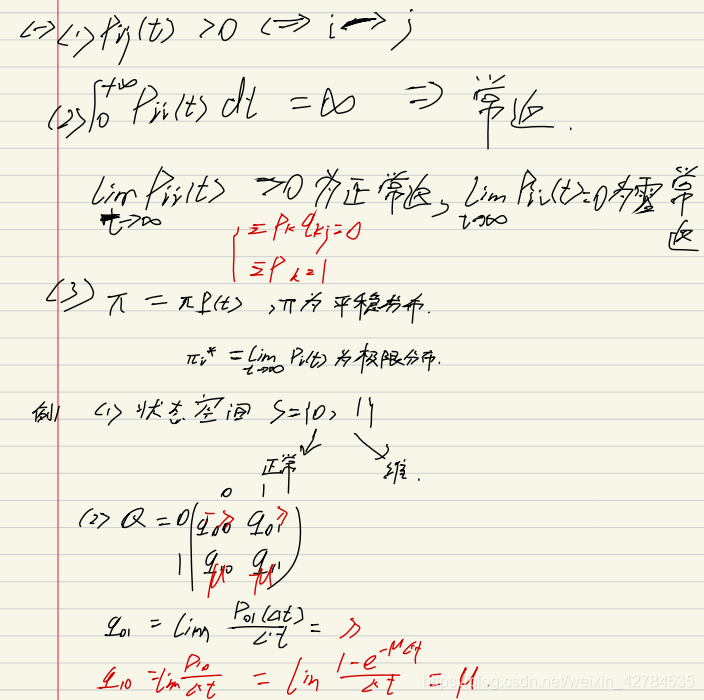 (一) (1) Pij(t) > 0 ⟺ i → j
(2) ∫₀^{+∞} Pii(t) dt = ∞ ⟹ 常返.
lim t→∞ Pii(t) > 0 为正常返, lim t→∞ Pii(t) = 0 为零常返
Σ Pk qkj = 0
Σ Pk = 1
(3) π = πP(t), π为平稳分布.
πi* = lim t→∞ Pi(t) 为极限分布.
例1 (1) 状态空间 S={0, 1}
正常 维.
0 1
(2) Q = 0 ( q00 -λ q01 λ
1 q10 μ q11 μ )
q01 = lim P01(Δt)/Δt = λ
q10 = lim P10/Δt = lim (1-e^{-μΔt})/Δt = μ
https://blog.csdn.net/weixin_42784535